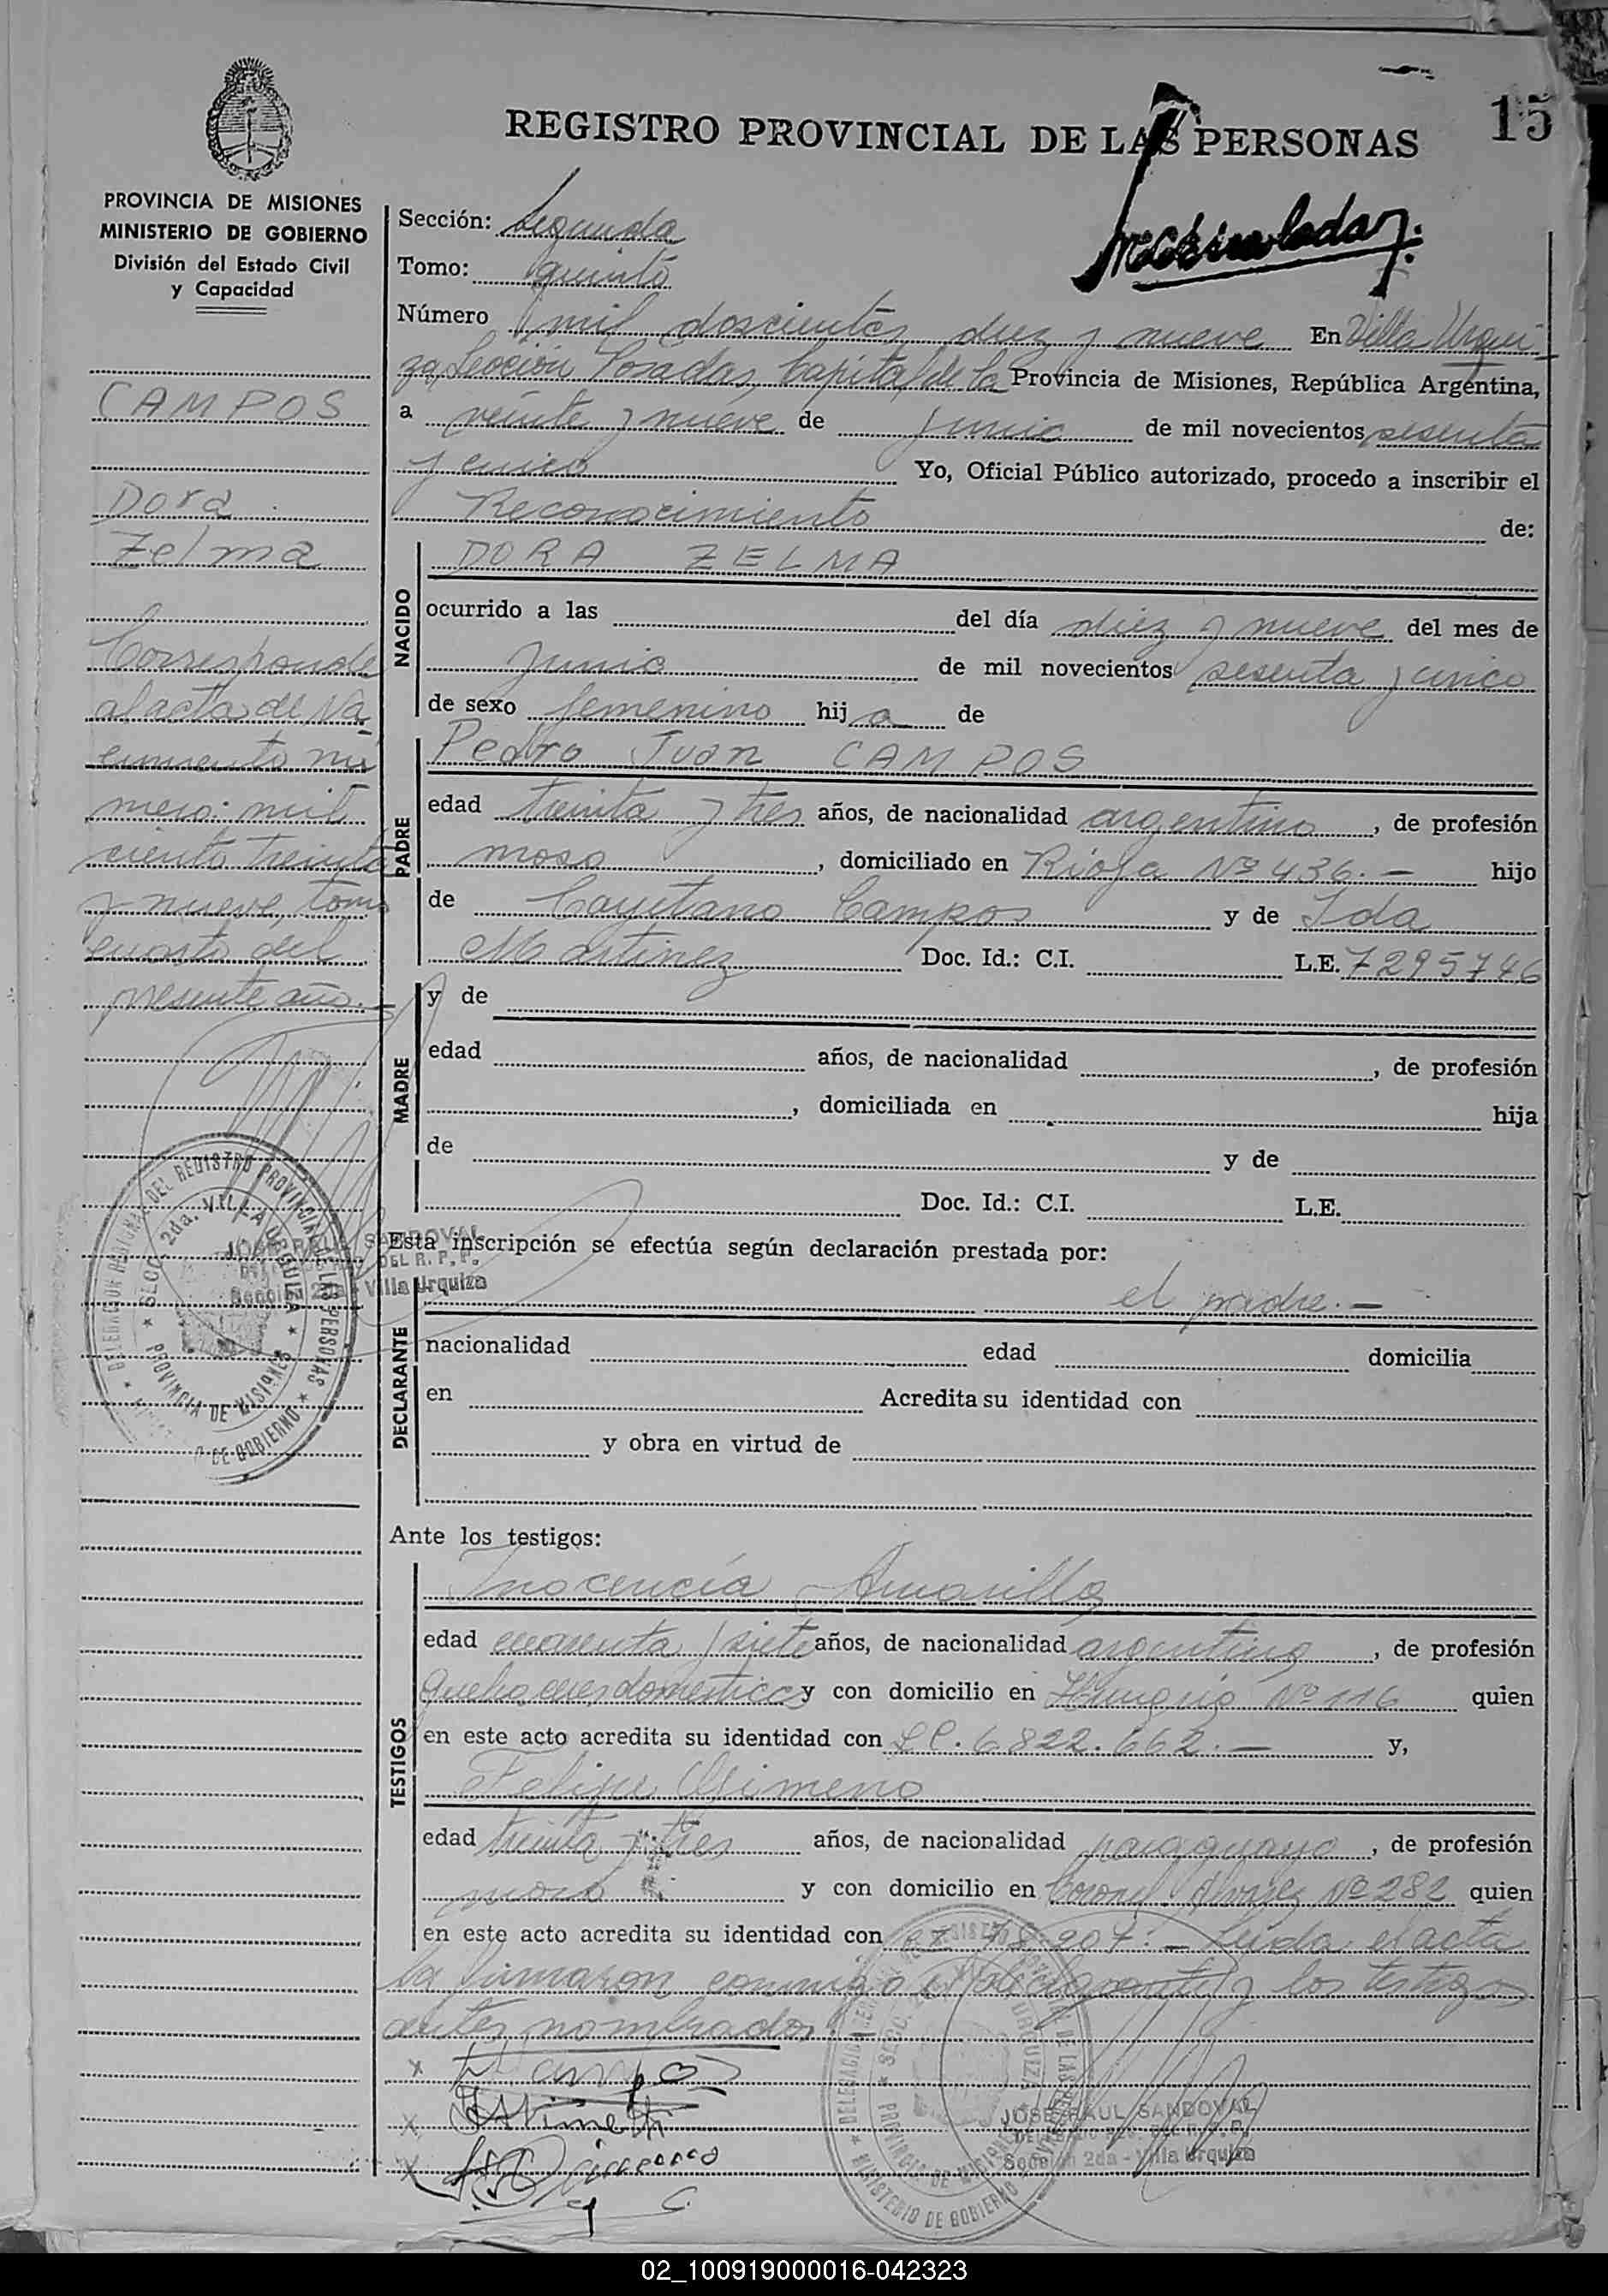 15
REGISTRO PROVINCIAL DE LAS PERSONAS
PROVINCIA DE MISIONES
MINISTERIO DE GOBIERNO
División del Estado Civil
y Capacidad
CAMPOS
Dora
Zelma
Corresponde
al acta de Na
cimiento nú
mero: mil
ciento treinta
y nueve, tomo
cuarto del
presente año.
Sección: Segunda
Tomo: quinto
Número mil doscientos diez y nueve En Villa Urqui
za, Sección Posadas, Capital de la Provincia de Misiones, República Argentina,
a veinte y nueve de junio de mil novecientos sesenta
y cinco Yo, Oficial Público autorizado, procedo a inscribir el
Reconocimiento de:
NACIDO
DORA ZELMA
ocurrido a las del día diez y nueve del mes de
junio de mil novecientos sesenta y cinco
de sexo femenino hija de
PADRE
Pedro Juan CAMPOS
edad treinta y tres años, de nacionalidad argentino, de profesión
moso, domiciliado en Rioja Nº 436.- hijo
de Cayetano Campos y de Ida
Martinez Doc. Id.: C.I. L.E. 7295746
MADRE
y de
edad años, de nacionalidad , de profesión
, domiciliada en hija
de y de
Doc. Id.: C.I. L.E.
Esta inscripción se efectúa según declaración prestada por:
DECLARANTE
el padre.-
nacionalidad edad domicilia
en Acredita su identidad con
y obra en virtud de
Ante los testigos:
TESTIGOS
Inocencia Amarilla
edad cuarenta y siete años, de nacionalidad argentina, de profesión
Quehaceres domesticos y con domicilio en Hungria Nº 116 quien
en este acto acredita su identidad con LC. 6822.662.- y,
Felipe Gimeno
edad treinta y tres años, de nacionalidad paraguayo, de profesión
moso y con domicilio en Coronel Alvarez Nº 282 quien
en este acto acredita su identidad con 907.- Leida el acta
la firmaron conmigo el declarante y los testigos
antes nombrados.
Campos
JOSE RAUL SANDOVAL
DEL R. P. P.
Sección 2da - Villa Urquiza
DELEGACION DEL REGISTRO PROVINCIAL DE LAS PERSONAS
SECC. 2da. VILLA URQUIZA
PROVINCIA DE MISIONES
MINISTERIO DE GOBIERNO
JOSE RAUL SANDOVAL
Sección 2da - Villa Urquiza
02_100919000016-042323